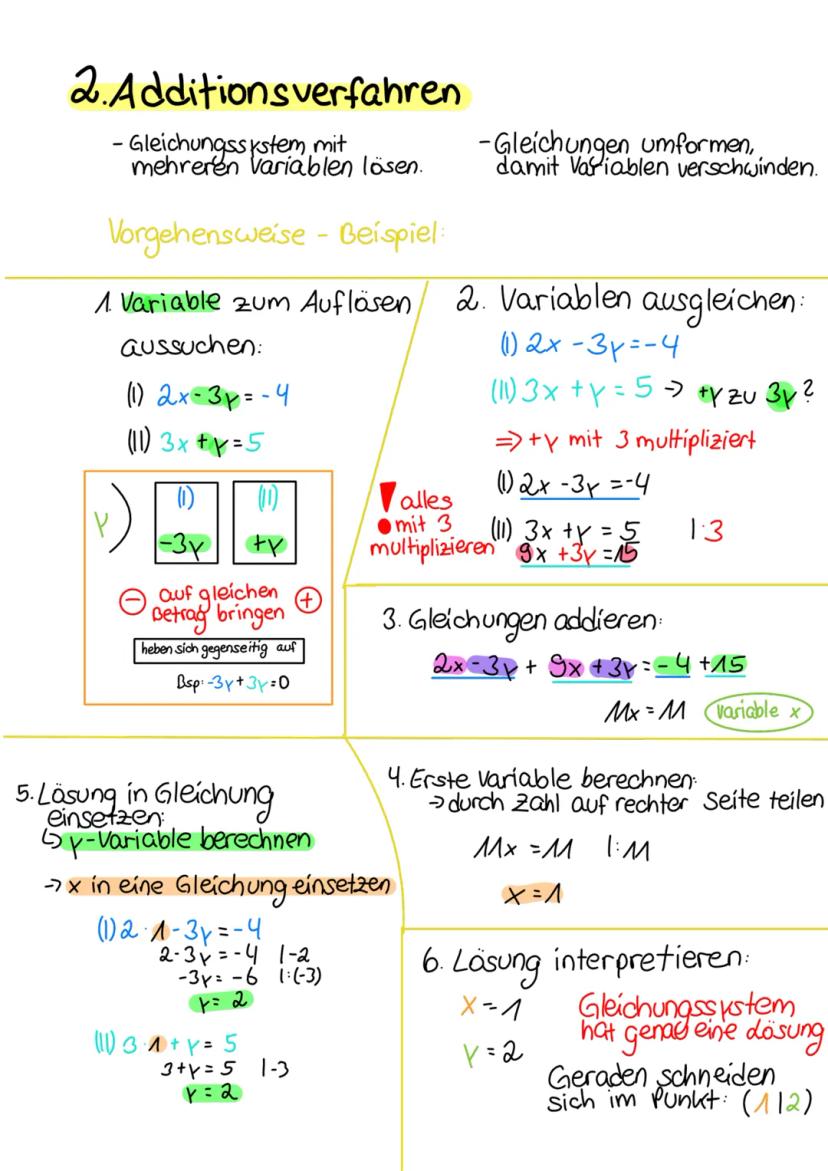 2. Additionsverfahren
- Gleichungssystem mit
mehreren Variablen lösen.
- Gleichungen umformen,
damit Variablen verschwinden.
Vorgehensweise - Beispiel:
1. Variable zum Auflösen
aussuchen:
(I) 2x - 3y = - 4
(II) 3x + y = 5
y)
(I)
-3y
(II)
+y
⊖ auf gleichen ⊕
Betrag bringen
heben sich gegenseitig auf
Bsp: -3y + 3y = 0
2. Variablen ausgleichen:
(I) 2x - 3y = -4
(II) 3x + y = 5 -> +y zu 3y?
=> + y mit 3 multipliziert
(I) 2x - 3y = -4
! alles
mit 3
multiplizieren
(II) 3x + y = 5 | · 3
9x + 3y = 15
3. Gleichungen addieren:
2x - 3y + 9x + 3y = - 4 + 15
11x = 11 Variable x
4. Erste Variable berechnen:
-> durch Zahl auf rechter Seite teilen
11x = 11 | : 11
x = 1
5. Lösung in Gleichung
einsetzen:
↳ y-Variable berechnen
-> x in eine Gleichung einsetzen
(I) 2 · 1 - 3y = -4
2 - 3y = -4 | -2
-3y = -6 | : (-3)
y = 2
(II) 3 · 1 + y = 5
3 + y = 5 | -3
y = 2
6. Lösung interpretieren:
x = 1
y = 2
Gleichungssystem
hat genau eine Lösung
Geraden schneiden
sich im Punkt: (1|2)